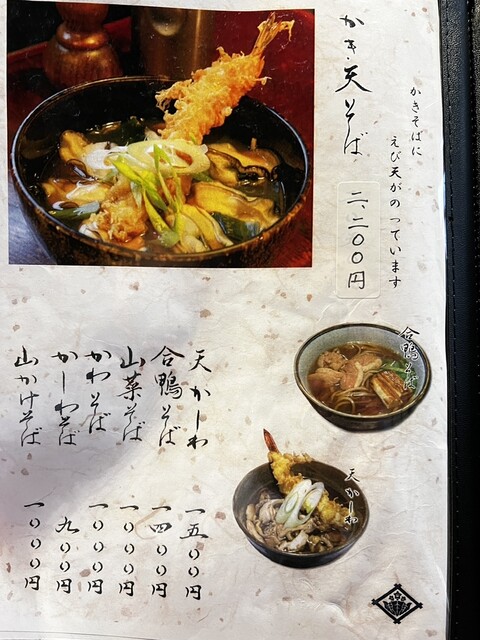 かき・天そば
二、二〇〇円
かきそばに
えび天がのっています
合鴨そば
天かしわ
天かしわ
一五〇〇円
合鴨そば
一四〇〇円
山菜そば
一〇〇〇円
かわそば
一〇〇〇円
かしわそば
九〇〇円
山かけそば
一〇〇〇円